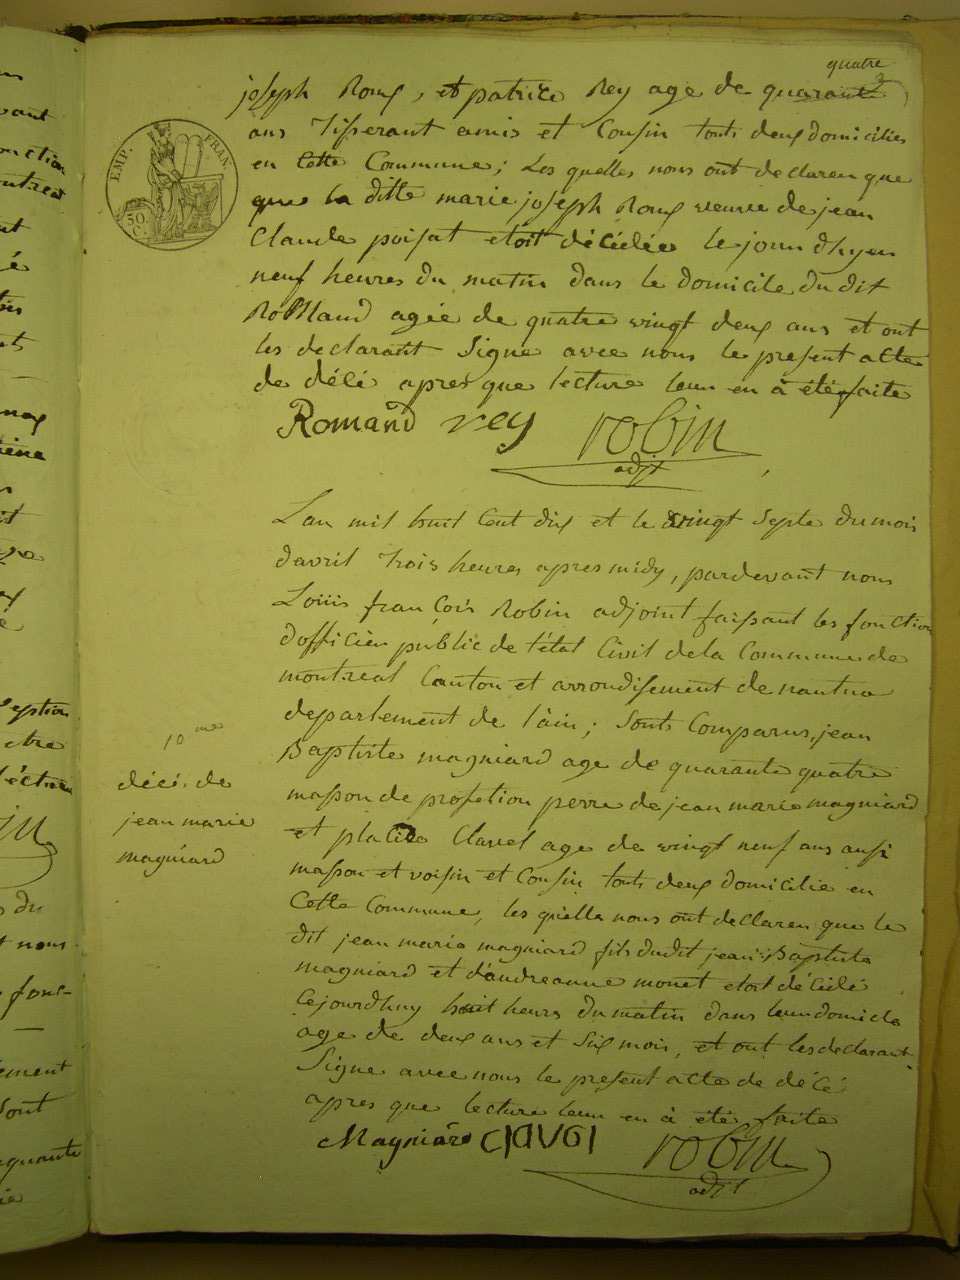 quatre
joseph Roux, et patrice Rey age de quarante
ans Tisserant amis et Cousin touts deux domicilies
en Cette Commune; Les quelles nous ont declaren que
que la ditte marie joseph Roux veuve de jean
Claude poisat etoit décédée le jourd'hyer
neuf heures du matin dans le domicile du dit
agée de quatre vingt deux ans et ont
les declarant Signe avec nous le present acte
de décé apres que lecture leur en à été faite
EMP. FRAN.
50 C.
Romand rey robin
adjt
Lan mil huit Cent dix et le vingt Septe du mois
davril trois heures apres midy, pardevant nous
Louis françois Robin adjoint faisant les fonction
dofficier public de l'état Civil de la Commune de
montreal Canton et arrondisement de nantua
departement de l'ain; Sont Comparus, jean
Baptiste magniard age de quarante quatre
masson de profetion perre de jean marie magniard
et placide Clavel age de vingt neuf ans ausi
masson et voisin et Cousin touts deux domicilie en
Cette Commune, les quelle nous ont declaren que le
dit jean marie magniard fils dudit jean Baptiste
magniard et d'andreanne monet etoit décédé
Cejourdhuy huit heures du matin dans leur domicile
age de deux ans et Six mois, et ont les declarant
Signe avec nous le present acte de décé
apres que lecture leur en à été faite
10me
décé. de
jean marie
magniard
Magniard Clavel robin
adjt